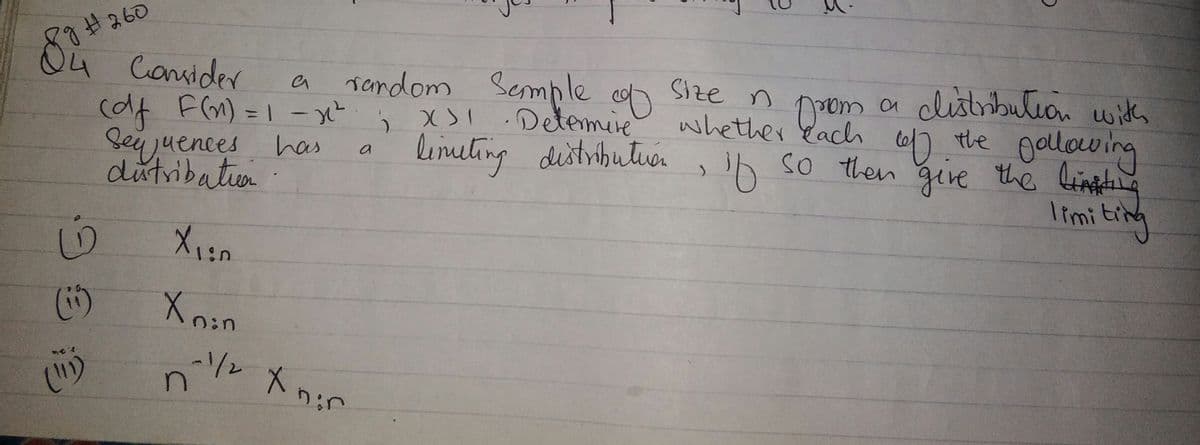 8g # 260
Q4 Consider a random Sample of Size n from a distribution with
cdf F(x) = 1 - x² ; x>1 . Determine whether each of the following
Sequences has a limiting distribution, if so then give the
limiting
distribution.
(i) X₁:n
(ii) Xn:n
(iii) n^-1/2 Xn:n